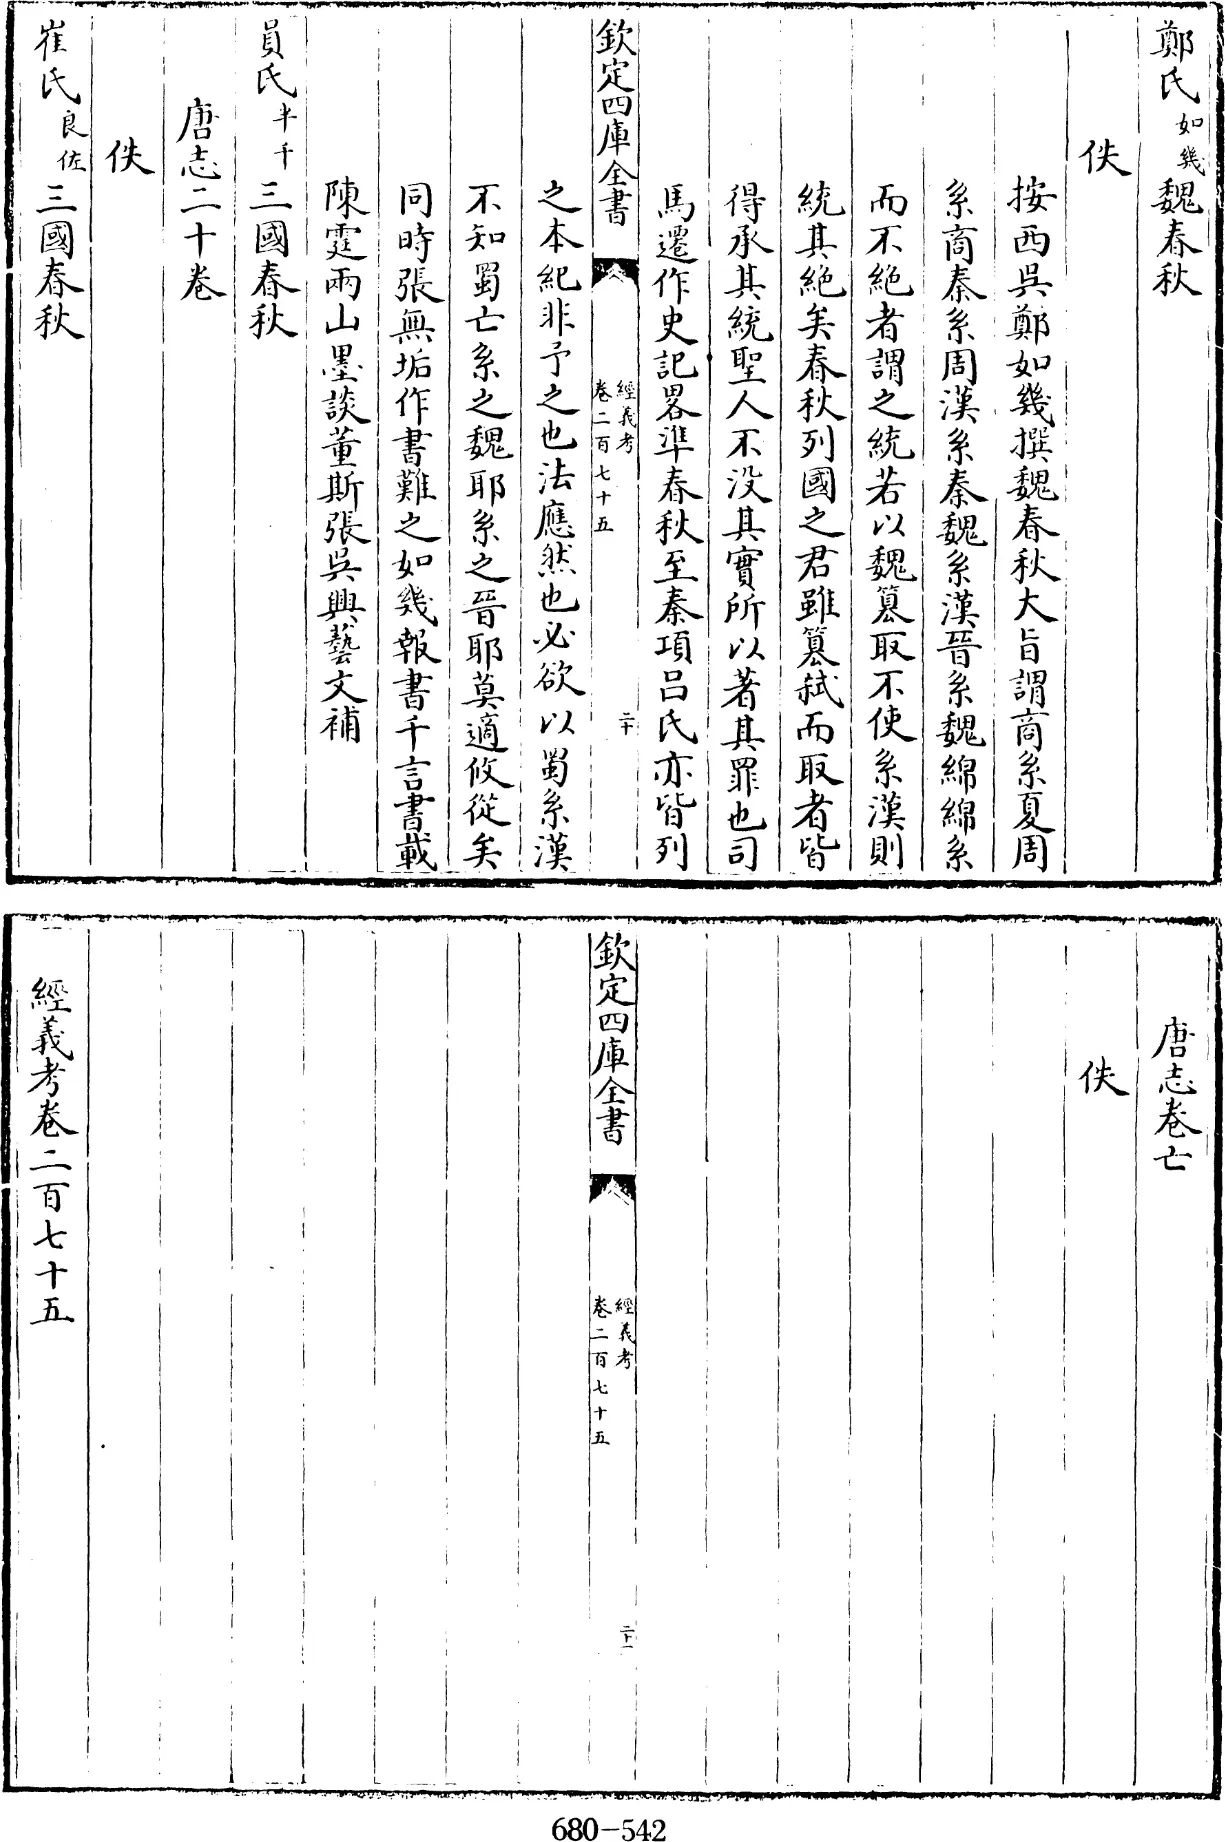 鄭氏如幾魏春秋
佚
按西吳鄭如幾撰魏春秋大旨謂商系夏周
系商秦系周漢系秦魏系漢晉系魏綿綿系
而不絶者謂之統若以魏簒取不使系漢則
統其絶矣春秋列國之君雖簒弑而取者皆
得承其統聖人不没其實所以著其罪也司
馬遷作史記畧準春秋至秦項吕氏亦皆列
欽定四庫全書
經義考
卷二百七十五
二十
之本紀非予之也法應然也必欲以蜀系漢
不知蜀亡系之魏耶系之晉耶莫適攸從矣
同時張無垢作書難之如幾報書千言書載
陳霆兩山墨談董斯張吳興藝文補
員氏半千三國春秋
唐志二十卷
佚
崔氏良佐三國春秋
唐志卷亡
佚
欽定四庫全書
經義考
卷二百七十五
二十一
經義考卷二百七十五
680-542